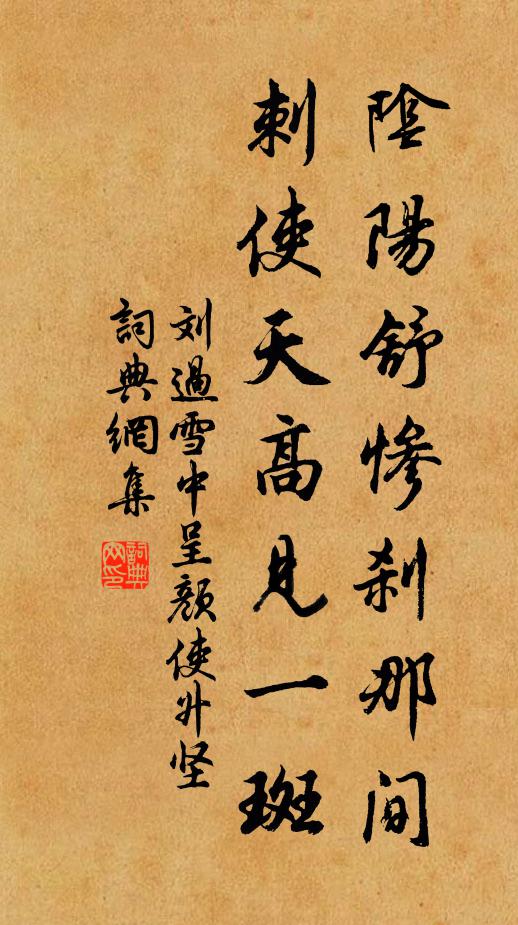 陰陽舒慘刹那間
刺使天高見一斑
刘過雪中呈顏使外坚
詞典網集
詞典
网印